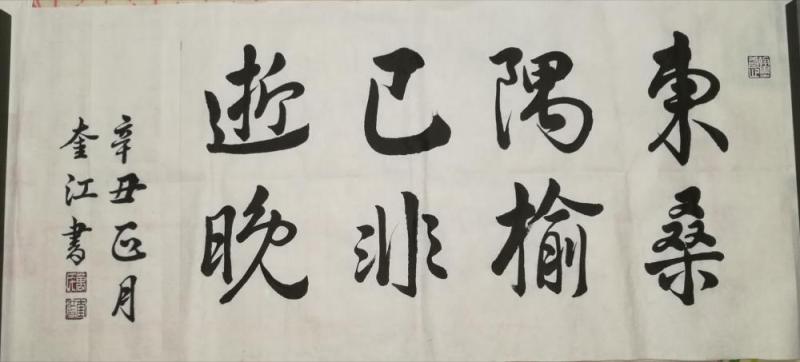 東隅已逝
桑榆非晚
辛丑正月
奎江書